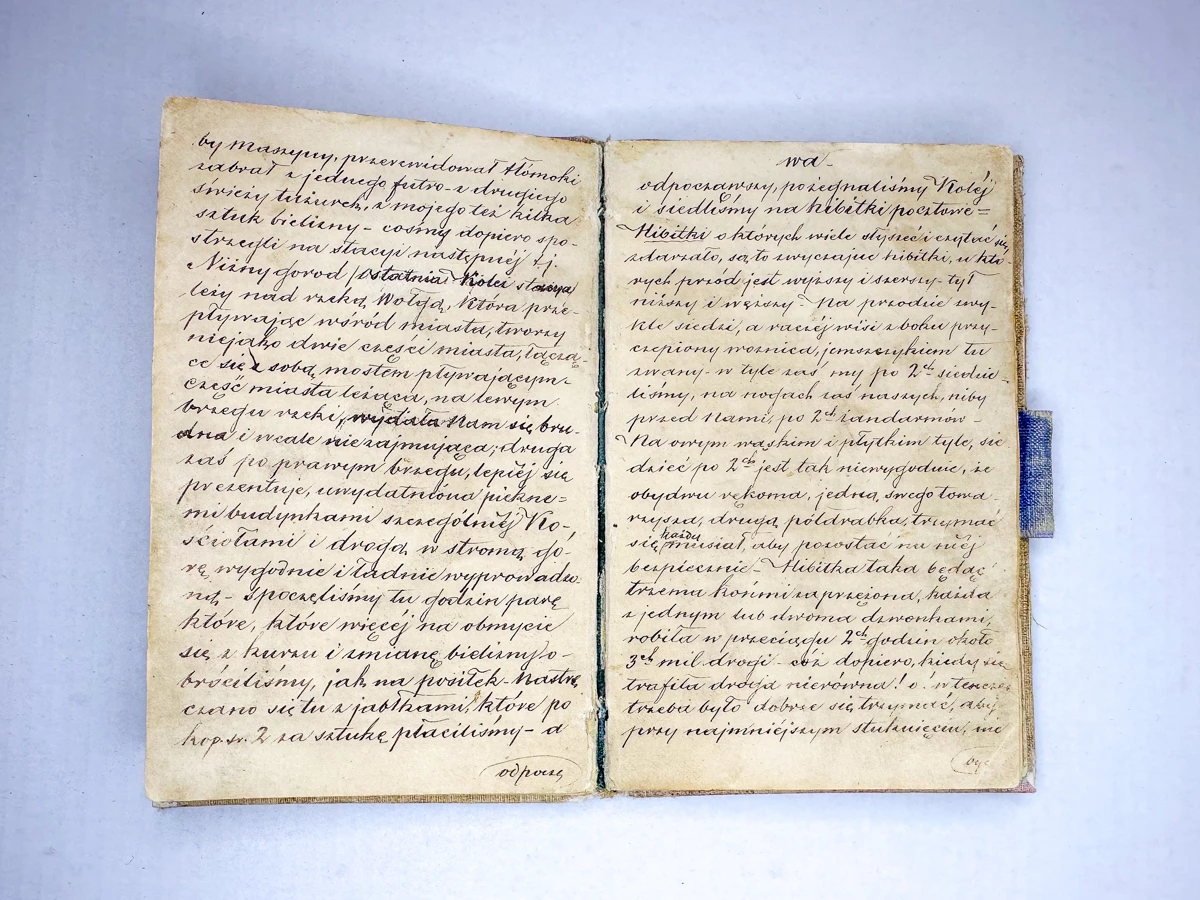 by maszyny, przerewidował tłómoki
zabrał z jednego futro - z drugiego
świeży tużurek, z mojego też kilka
sztuk bielizny - cośmy dopiero spo-
strzegli na stacyi następnéj t.j.
Niżny gorod / ostatnia Kolei stacya
leży nad rzeką Wołgą, która prze-
pływając wśród miasta, tworzy
niejako dwie części miasta, łączą-
ce się z sobą mostem pływającym -
część miasta leżąca, na lewym
brzegu rzeki, wydała nam się bru-
dna i wcale niezajmująca; druga
zaś po prawym brzegu, lepiéj się
prezentuje, uwydatniona piękne=
mi budynkami szczególniéj Ko-
ściołami i drogą w stromą gó-
rę wygodnie i ładnie wyprowadzo-
ną - Spoczęliśmy tu godzin parę
które, które więcéj na obmycie
się z kurzu i zmianę bielizny o-
bróciliśmy, jak na posiłek. Nastrę
czano się tu z jabłkami, które po
kop. sr. 2 za sztukę płaciliśmy - a
odpoczą
wa -
odpocząwszy, pożegnaliśmy Koléj
i siedliśmy na kibitki pocztowe =
Kibitki o których wiele słyszeć i czytać się
zdarzało, są to zwyczajne kibitki, u któ-
rych przód jest wyższy i szerszy - tył
niższy i węższy - Na przodzie zwy-
kle siedzi, a raczéj wisi z boku przy-
czepiony woźnica, jemszczykiem tu
zwany - w tyle zaś my po 2ch siedzie-
liśmy, na nogach zaś naszych, niby
przed nami, po 2ch żandarmów -
Na owym wąskim i płytkim tyle, sie
dzieć po 2ch jest tak niewygodnie, że
obydwu rękoma, jedną swego towa-
rzysza, drugą półdrabka, trzymać
się każdy musiał, aby pozostać na niéj
bezpiecznie - Kibitka taka będąc
trzema końmi zaprzężona, każda
z jednym lub dwoma dzwonkami,
robiła w przeciągu 2ch godzin około
3ch mil drogi - cóż dopiero, kiedy się
trafiła droga nierówna! o! wtenczas
trzeba było dobrze się trzymać, aby
przy najmniejszym stuknięciu, nie
być